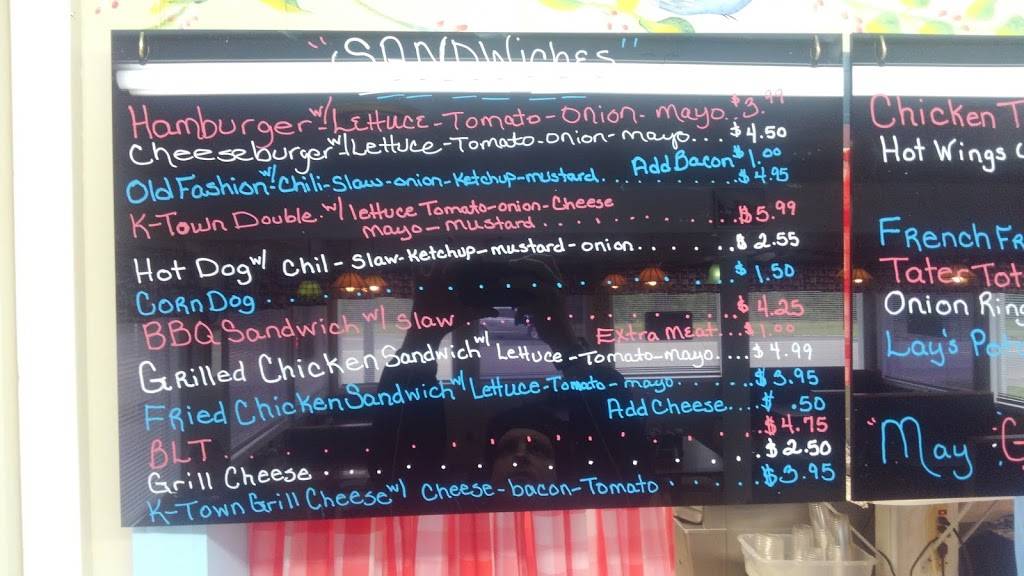 "SANDWiches"
Hamburger w/ Lettuce-Tomato-onion-mayo..$3.99
Cheeseburger w/ Lettuce-Tomato-onion-mayo...$4.50
Add Bacon $1.00
Old Fashion w/ Chili-Slaw-onion-Ketchup-mustard......$4.95
K-Town Double w/ lettuce Tomato-onion-Cheese
mayo-mustard............$5.99
Hot Dog w/ Chil-Slaw-Ketchup-mustard-onion......$2.55
Corn Dog..............$1.50
BBQ Sandwich w/ slaw..........$4.25
Extra Meat...$1.00
Grilled Chicken Sandwich w/ Lettuce-Tomato-mayo....$4.99
Fried Chicken Sandwich w/ Lettuce-Tomato-mayo......$3.95
Add Cheese....$.50
BLT..............$4.75
Grill Cheese..............$2.50
K-Town Grill Cheese w/ Cheese-bacon-Tomato......$3.95
Chicken T
Hot Wings
French Fr
Tater Tot
Onion Ring
Lay's Pot
"May G